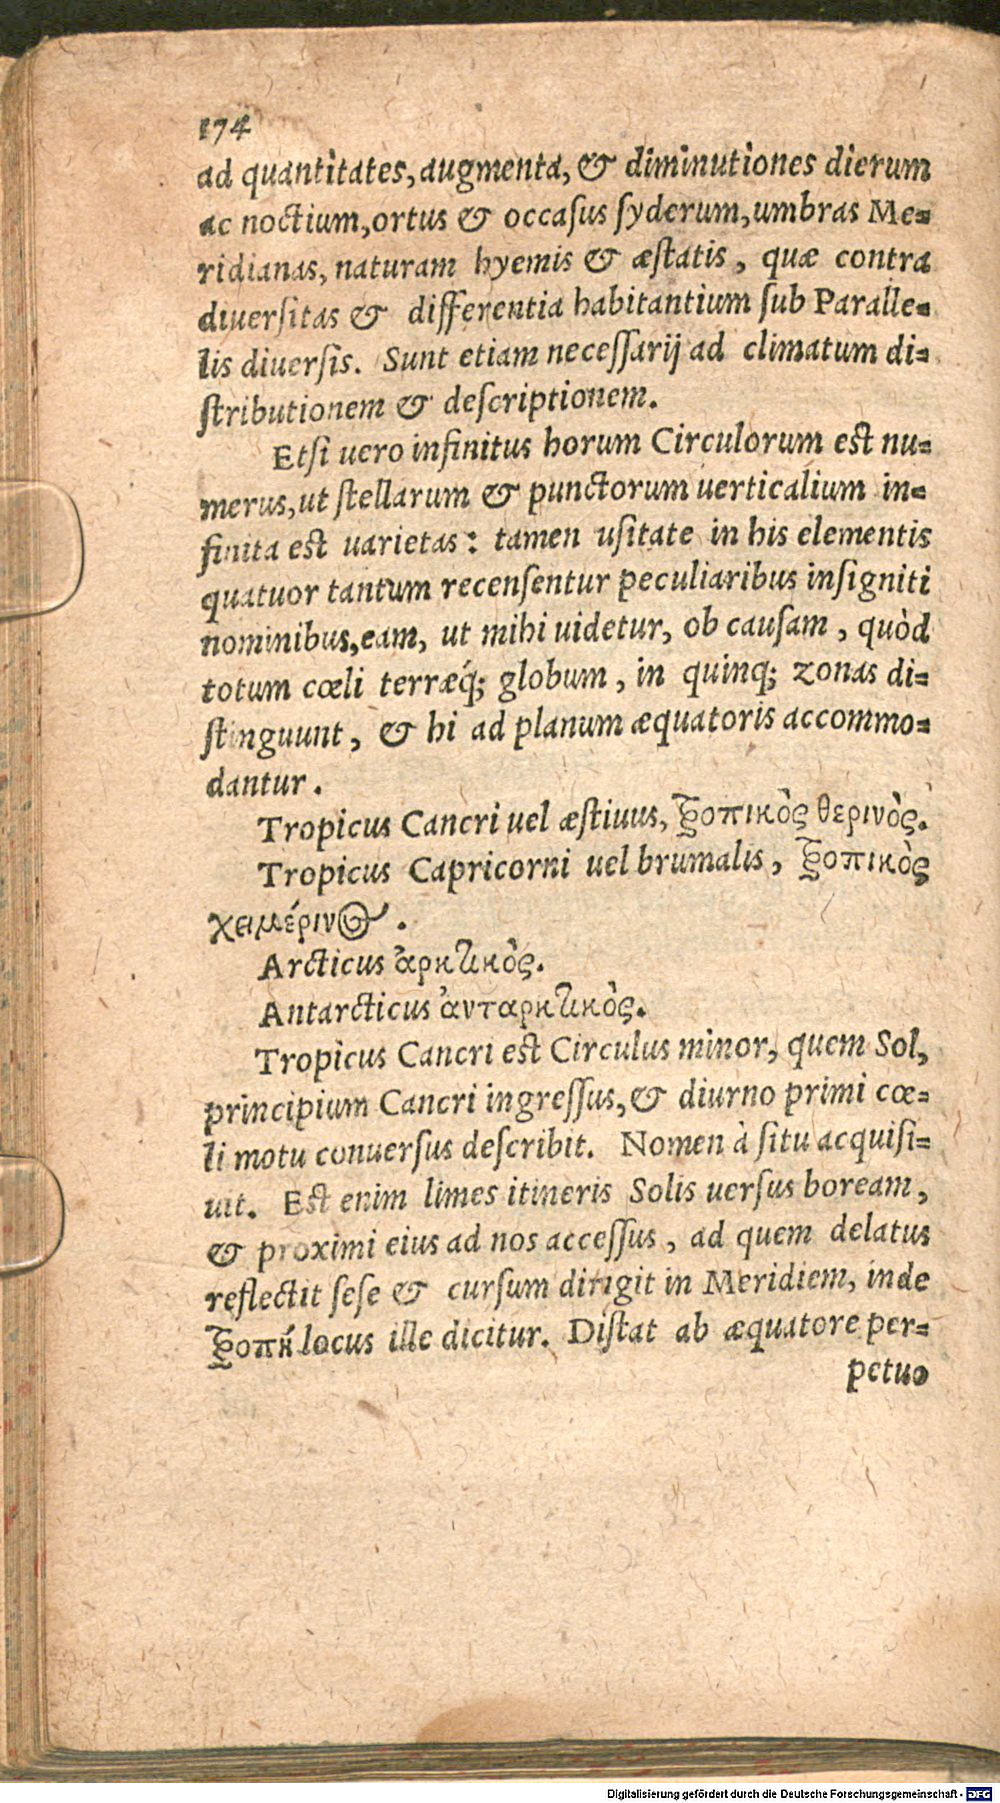 174
ad quantitates, augmenta, & diminutiones dierum
ac noctium, ortus & occasus syderum, umbras Me=
ridianas, naturam hyemis & æstatis, quæ contra
diuersitas & differentia habitantium sub Paralle=
lis diuersis. Sunt etiam necessarij ad climatum di=
stributionem & descriptionem.
Etsi uero infinitus horum Circulorum est nu=
merus, ut stellarum & punctorum uerticalium in=
finita est uarietas: tamen usitate in his elementis
quatuor tantum recensentur peculiaribus insigniti
nominibus, eam, ut mihi uidetur, ob causam, quòd
totum cœli terræq́; globum, in quinq; zonas di=
stinguunt, & hi ad planum æquatoris accommo=
dantur.
Tropicus Cancri uel æstiuus, τροπικὸς θερινὸς.
Tropicus Capricorni uel brumalis, τροπικὸς
χειμέρινος.
Arcticus ἀρκτικὸς.
Antarcticus ἀνταρκτικὸς.
Tropicus Cancri est Circulus minor, quem Sol,
principium Cancri ingressus, & diurno primi cœ=
li motu conuersus describit. Nomen à situ acquisi=
uit. Est enim limes itineris Solis uersus boream,
& proximi eius ad nos accessus, ad quem delatus
reflectit sese & cursum dirigit in Meridiem, inde
τροπὴ locus ille dicitur. Distat ab æquatore per=
petuo
Digitalisierung gefördert durch die Deutsche Forschungsgemeinschaft - DFG